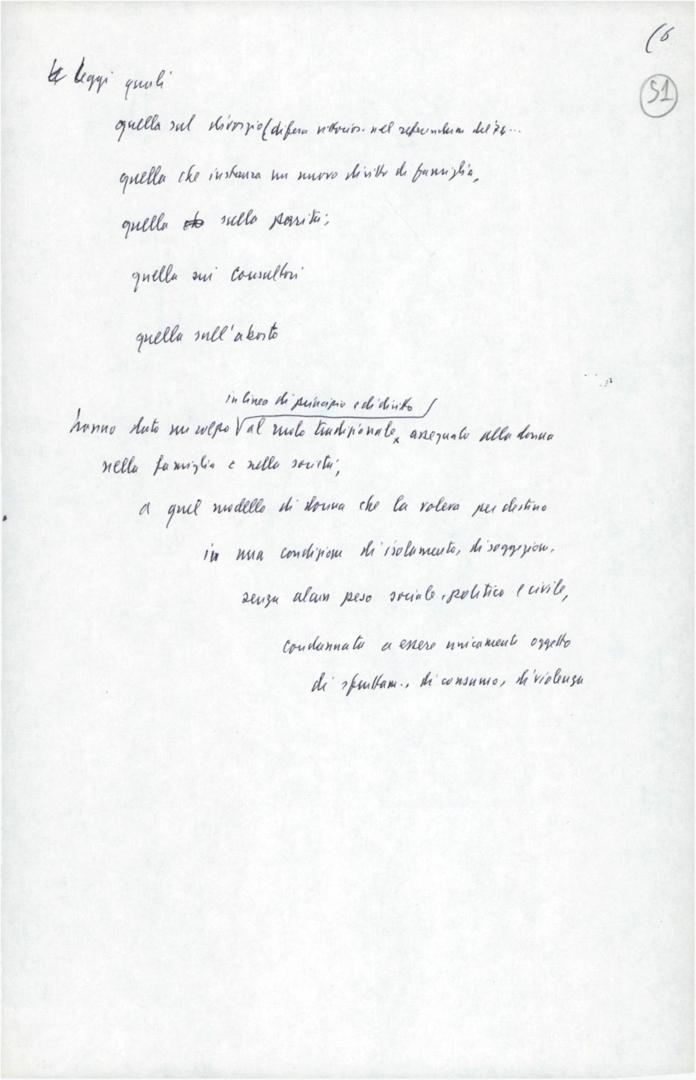 (6
51
Leggi quali
quella sul divorzio (difesa vittorios. nel referendum del 74...
quella che instaura un nuovo diritto di famiglia,
quella sulla parità;
quella sui Consultori
quella sull'aborto
in linea di principio e di diritto
hanno dato un colpo al ruolo tradizionale assegnato alla donna
nella famiglia e nella società;
a quel modello di donna che la voleva per destino
in una condizione di isolamento, di soggezion.
senza alcun peso sociale, politico e civile,
condannata a essere unicamente oggetto
di sfruttam., di consumo, di violenza